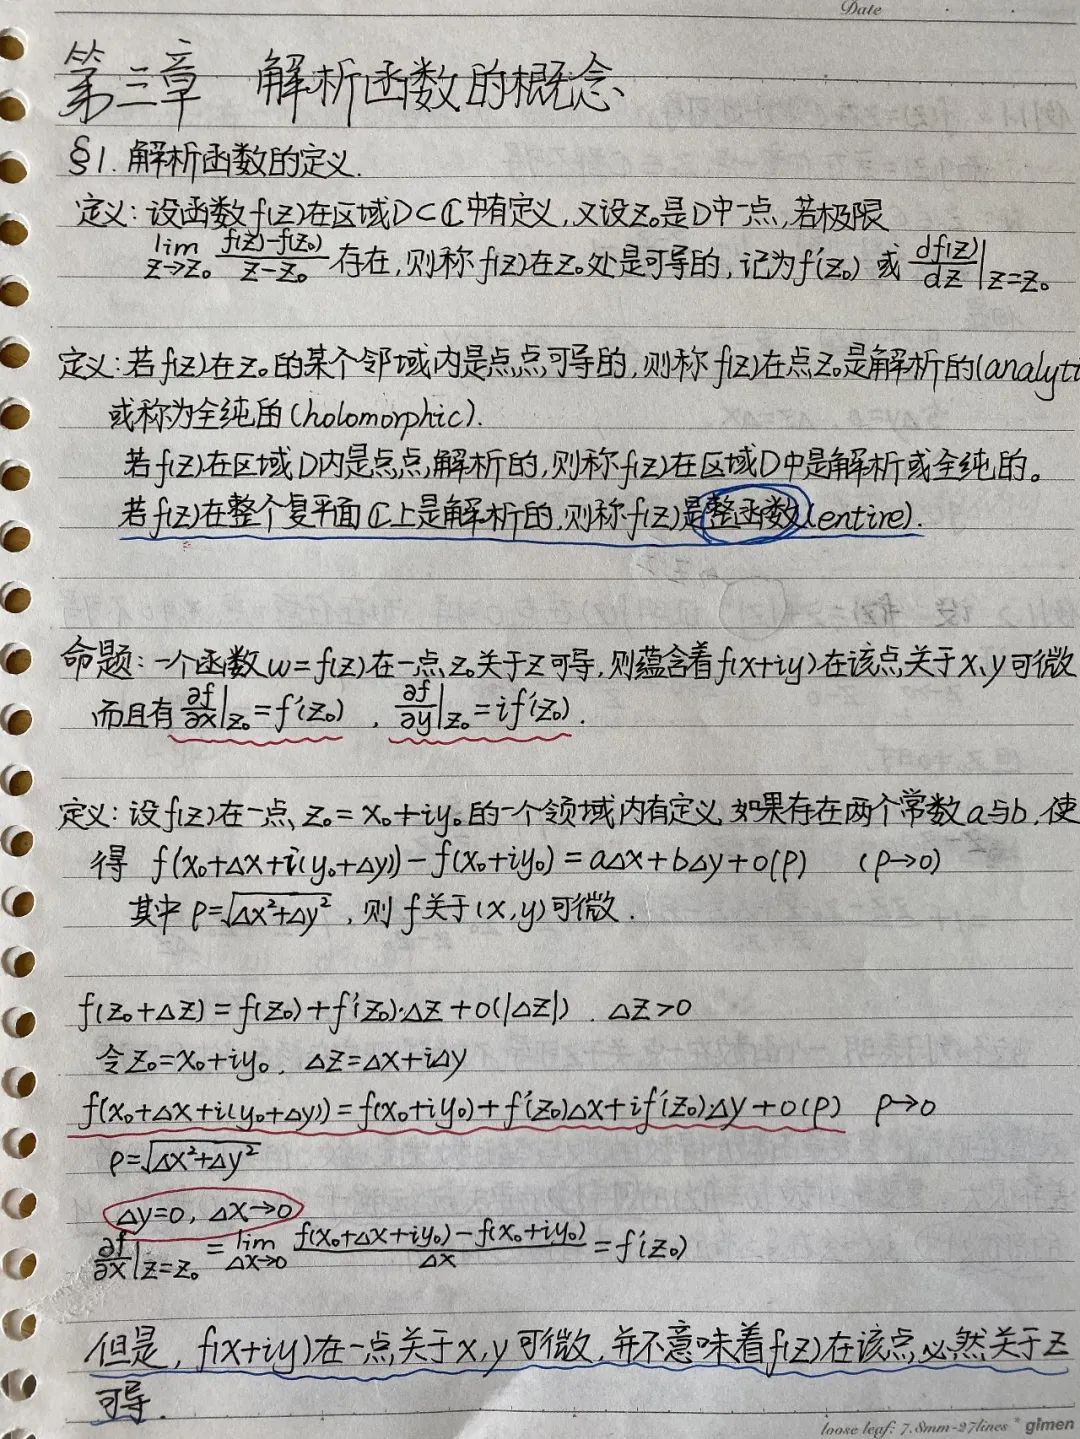 Date
第三章 解析函数的概念
§1. 解析函数的定义.
定义: 设函数f(z)在区域D⊂ℂ中有定义, 又设z₀是D中一点, 若极限
lim z→z₀ (f(z)-f(z₀))/(z-z₀) 存在, 则称f(z)在z₀处是可导的, 记为f'(z₀) 或 df(z)/dz|z=z₀
定义: 若f(z)在z₀的某个邻域内是点点可导的, 则称f(z)在点z₀是解析的(analyti
或称为全纯的(holomorphic).
若f(z)在区域D内是点点解析的, 则称f(z)在区域D中是解析或全纯的。
若f(z)在整个复平面ℂ上是解析的, 则称f(z)是整函数(entire).
命题: 一个函数w=f(z)在一点z₀关于z可导, 则蕴含着f(x+iy)在该点关于x,y可微
而且有 ∂f/∂x|z₀=f'(z₀) , ∂f/∂y|z₀=if'(z₀).
定义: 设f(z)在一点z₀=x₀+iy₀的一个领域内有定义, 如果存在两个常数a与b, 使
得 f(x₀+Δx+i(y₀+Δy))-f(x₀+iy₀)=aΔx+bΔy+o(ρ) (ρ→0)
其中ρ=√(Δx²+Δy²), 则f关于(x,y)可微.
f(z₀+Δz)=f(z₀)+f'(z₀)·Δz+o(|Δz|). Δz>0
令z₀=x₀+iy₀, Δz=Δx+iΔy
f(x₀+Δx+i(y₀+Δy))=f(x₀+iy₀)+f'(z₀)Δx+if'(z₀)Δy+o(ρ) ρ→0
ρ=√(Δx²+Δy²)
Δy=0, Δx→0
∂f/∂x|z=z₀ = lim Δx→0 (f(x₀+Δx+iy₀)-f(x₀+iy₀))/Δx = f'(z₀)
但是, f(x+iy)在一点关于x,y可微, 并不意味着f(z)在该点必然关于z
可导.
loose leaf: 7.8mm-27lines * gimen